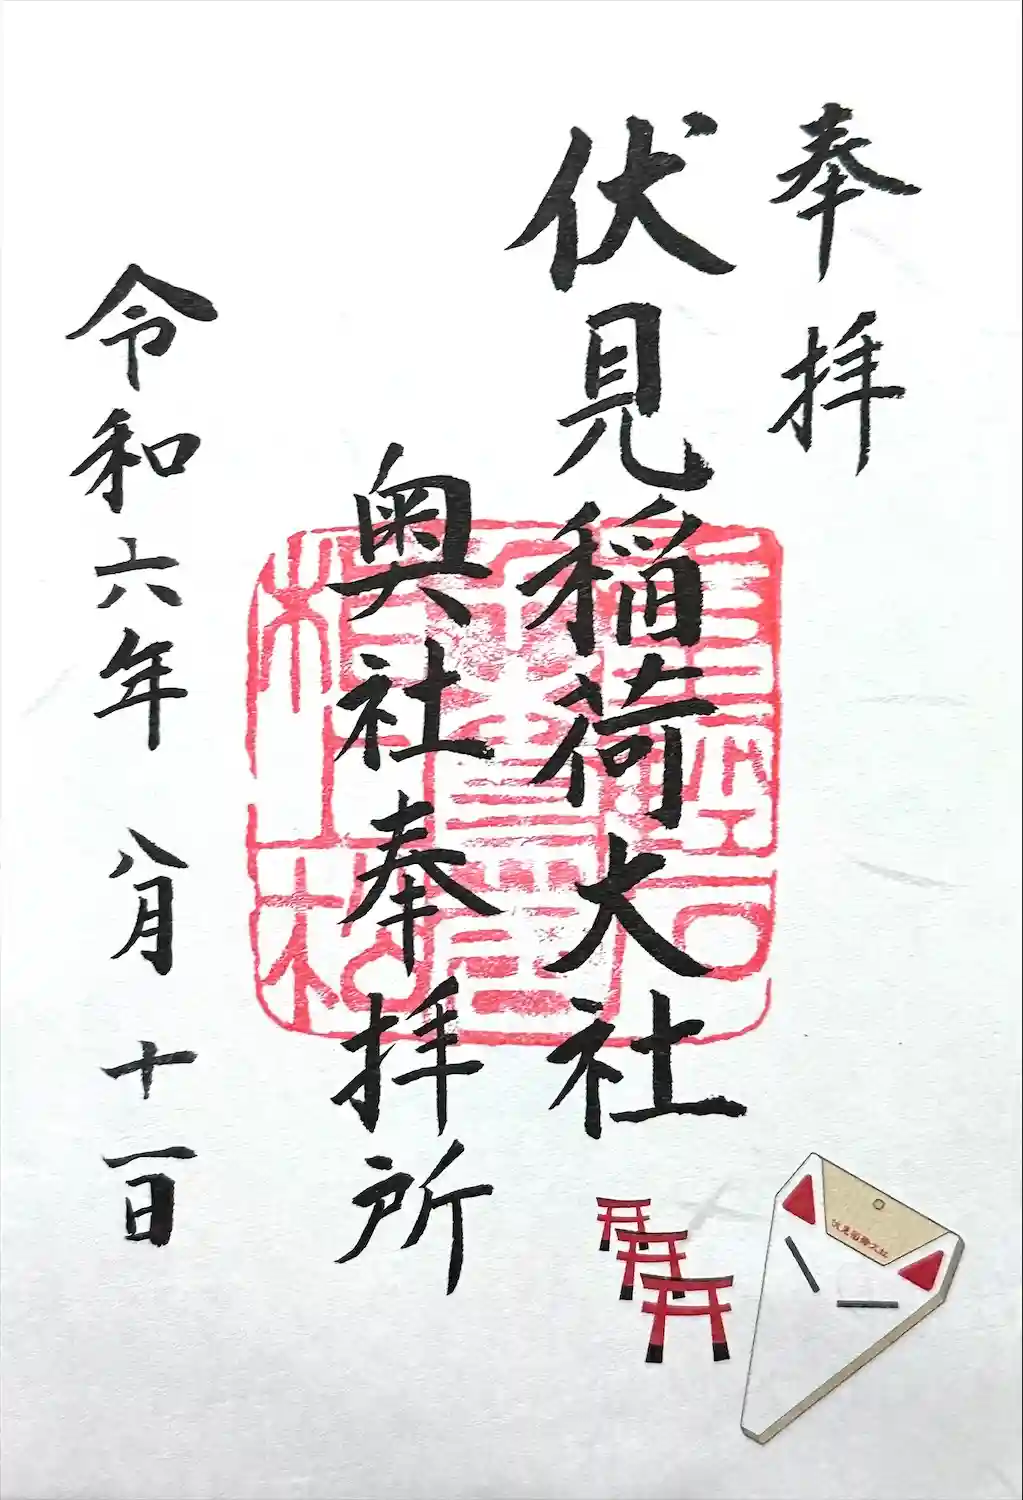 奉拝
伏見稲荷大社
奥社奉拝所
令和六年 八月 十一日
伏見稲荷大社